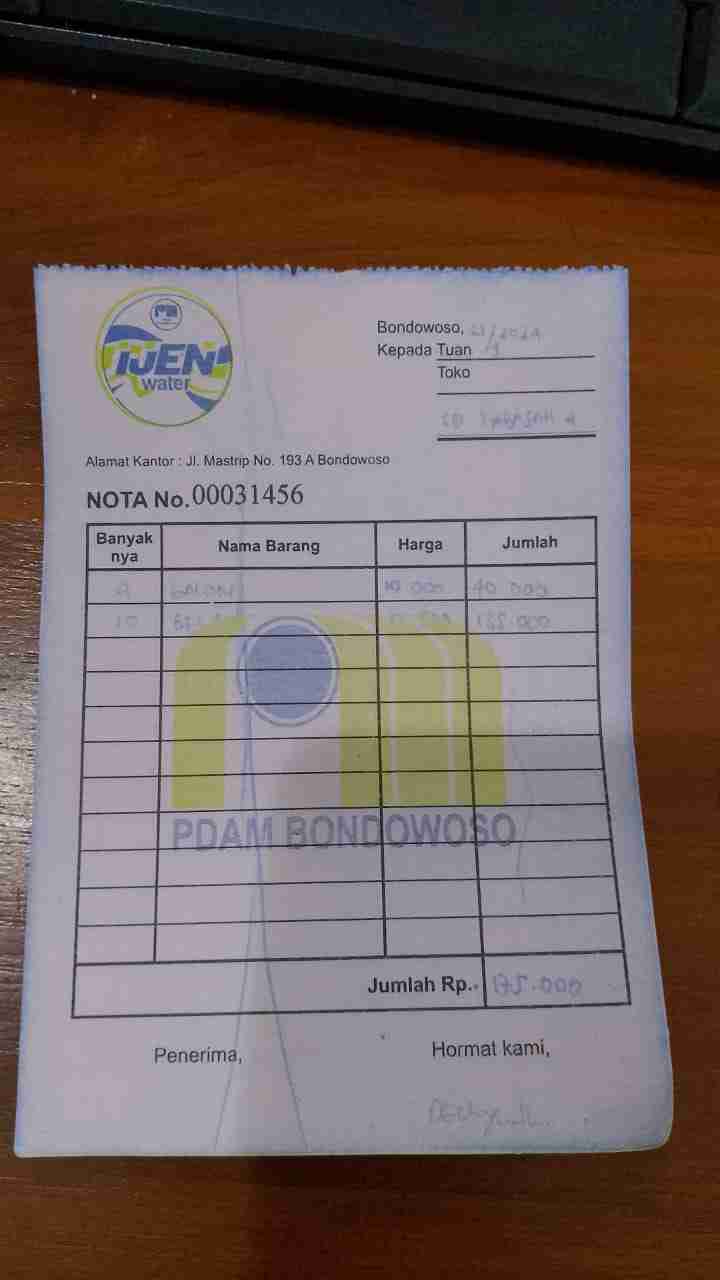 IJEN
water
Bondowoso,
Kepada Tuan
Toko
Alamat Kantor : Jl. Mastrip No. 193 A Bondowoso
NOTA No. 00031456
Banyak nya Nama Barang Harga Jumlah
GALON 10 000 40 000
10
PDAM BONDOWOSO
Jumlah Rp.- 175.000
Penerima, Hormat kami,